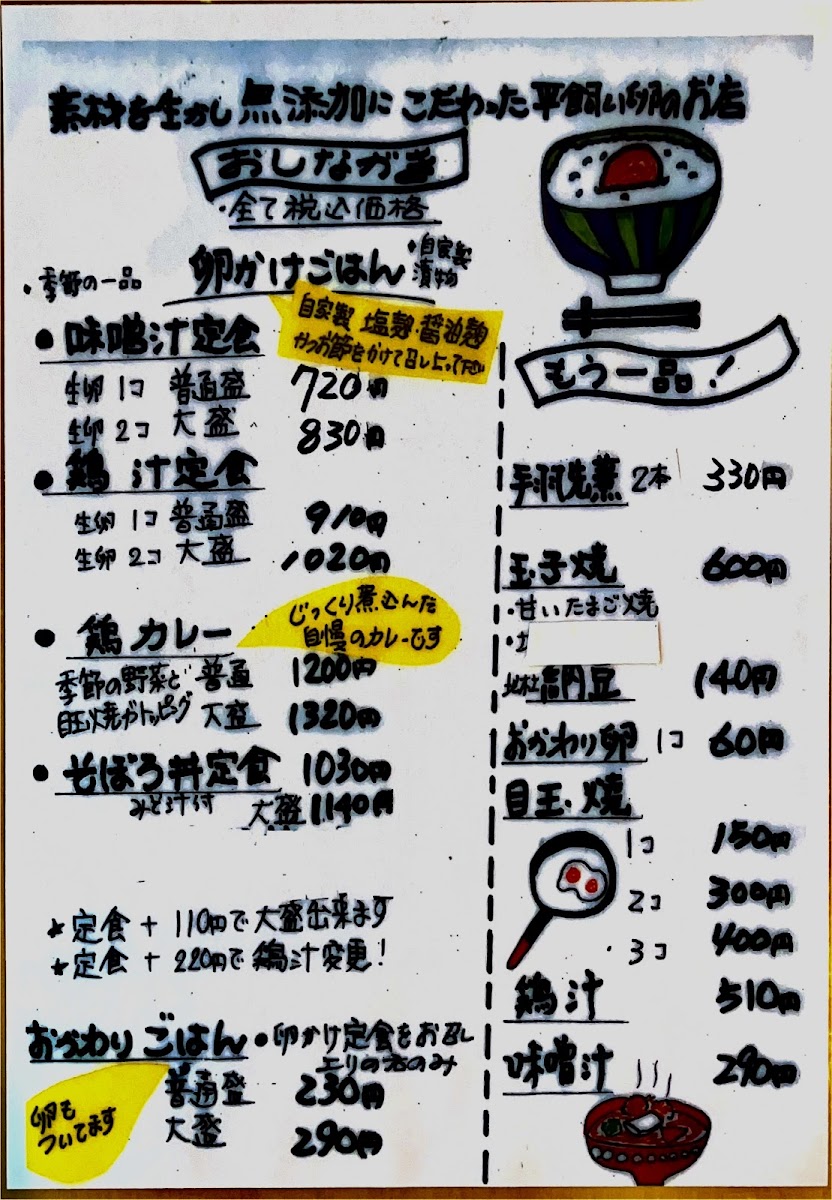 素材を生かし無添加にこだわった平飼い卵のお店
おしながき
・全て税込価格
・季節の一品
卵かけごはん
・自家製
漬物
自家製 塩麹・醤油麹
かつお節をかけて召し上って下さい
● 味噌汁定食
生卵 1コ 普通盛 720円
生卵 2コ 大盛 830円
● 鶏汁定食
生卵 1コ 普通盛 910円
生卵 2コ 大盛 1020円
じっくり煮込んだ
自慢のカレーです
● 鶏カレー
季節の野菜と 普通 1200円
目玉焼がトッピング 大盛 1320円
● そぼろ丼定食 1030円
みそ汁付 大盛 1140円
★定食 + 110円で大盛出来ます
★定食 + 220円で鶏汁変更!
おかわりごはん ●卵かけ定食をお召し
上りの方のみ
普通盛 230円
大盛 290円
卵も
ついてます
もう一品!
手羽先煮 2本 330円
玉子焼 600円
・甘いたまご焼
・
納豆 140円
おかわり卵 1コ 60円
目玉焼
1コ 150円
2コ 300円
・3コ 400円
鶏汁 510円
味噌汁 290円